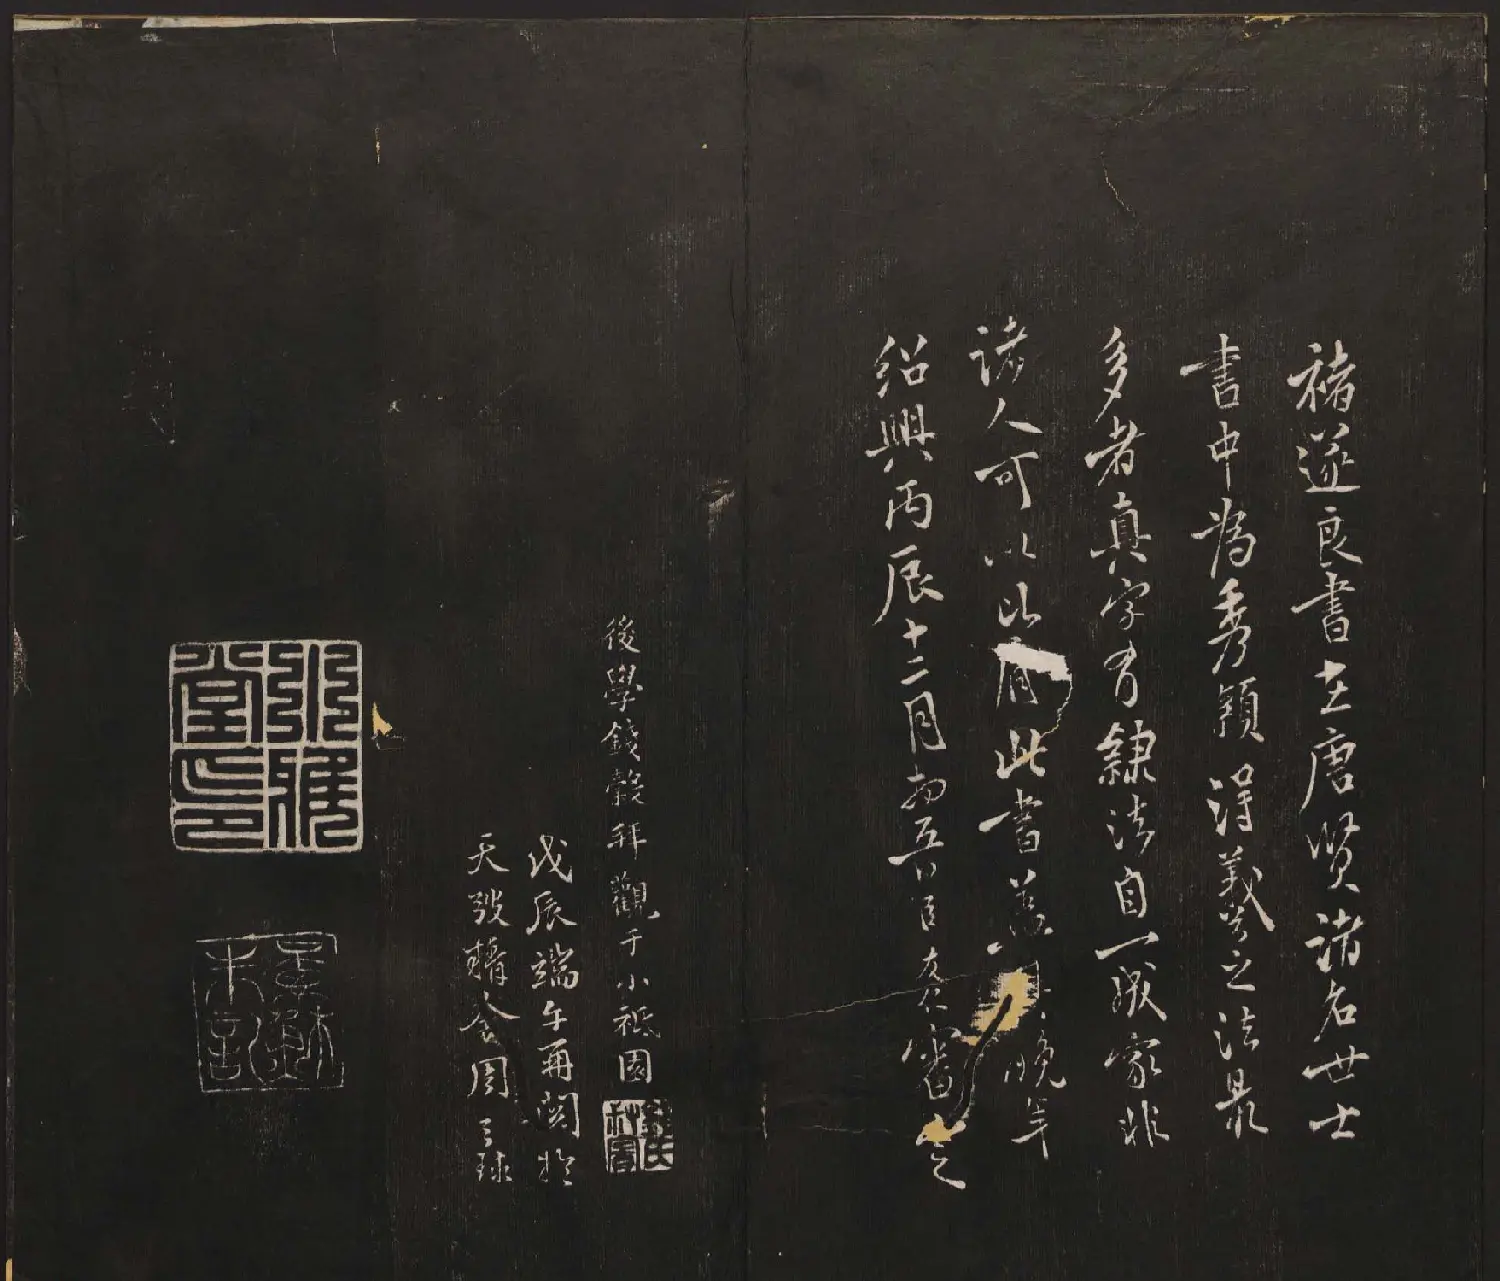 褚遂良書在唐賢諸名世士
書中為秀穎得羲之之法最
多者真字有隸法自一成家非
諸人可以比肩此書蓋其晚年
紹興丙辰十二月初五日臣米審定
後學錢穀拜觀于小祗園
戊辰端午再閱於
天弢精舍周天球